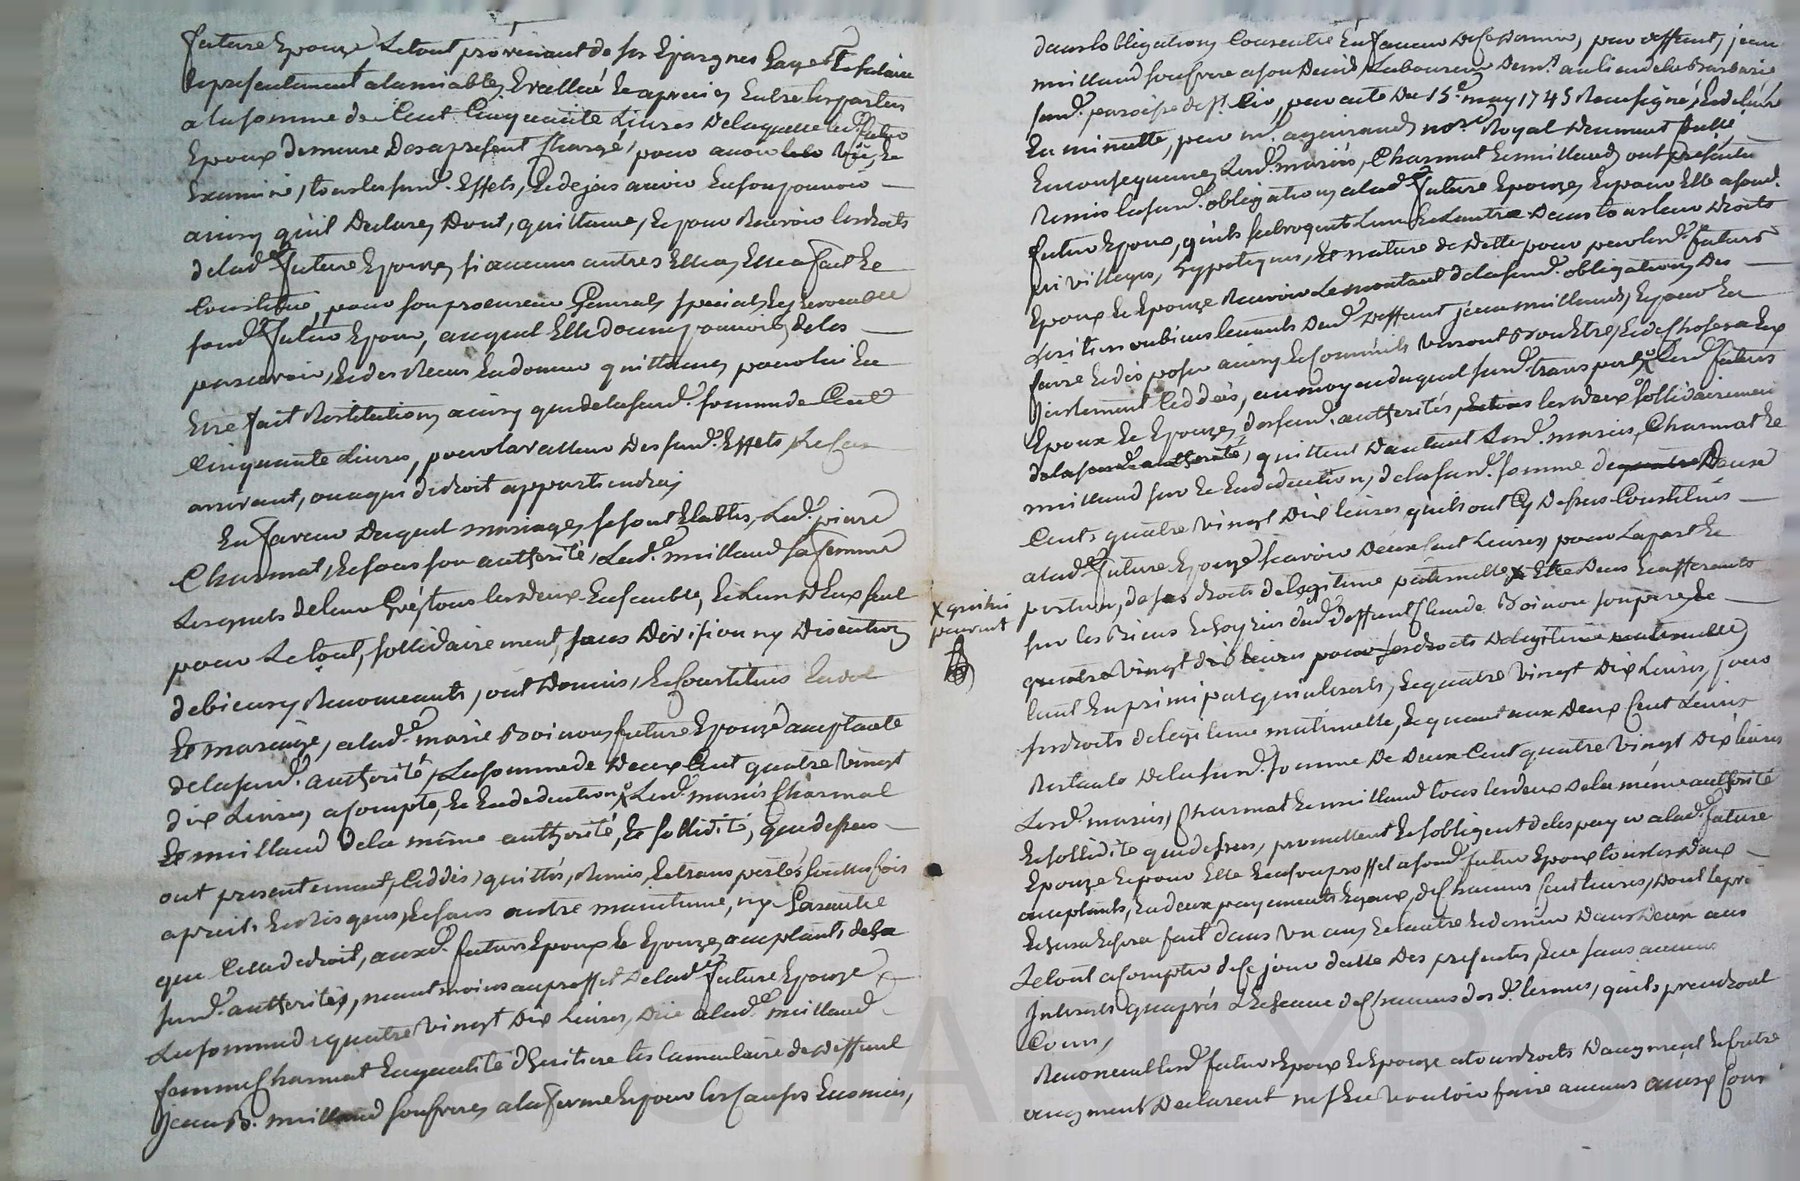 future Epouze Le tout provenant de ses Epargnes gages Et salaire
representement alamiable, Evallué Et aprecié Entre les parties
a la somme de Cent Cinquante Livres de laquelle led.t futur
Epoux demeure des apresent Chargé, pour avoir vû, Et
Examiné, tous les susd. Effets, Et dejas avoir En son pouvoir
ainsy qu'il declare, dont, quittance, Et pour Recevoir les droits
de lad.e future Epouze, si aucuns autres Elle a, Elle a fait Et
Constitué, pour son procureur General, special, Et irrevocable
son d.t futur Epoux, auquel Elle donne pouvoir, de les
percevoir, Et des Recus En donner quittance, pour lui En
Etre fait Restitution, ainsy que de la susd. somme de Cent
Cinquante Livres, pour la valleur des susd. Effets, Le Cas
arrivant, ou a qui de droit appartiendra,
En faveur duquel mariage, se sont Etablis, Led. pierre
Charmat, Et sous son authorité, Lad.e muilland sa femme
Lesquels de leur Gré, tous les deux Ensemble, Et L'un d'Eux seul
pour Le tout, sollidairement, sans Division ny Discution
de biens, Renonceants, ont Donné, Et Constitués En dot
Et mariage, a lad.e marie Boinon, future Epouze acceptante
de la susd. authorité, La somme de deux Cent quatre vingt
dix Livres, a Compte, Et En deduction Led. mariés Charmat
Et muilland de la même authorité, Et sollidité, que dessus
ont presentement, Ceddés, quittés, Remis, Et transportés, sans
perils Et Risques, Et sans autre maintenue, ny Garentie
que Celle de droit, auxd. futurs Epoux Et Epouze, acceptants de la
susd. authorité, neantmoins au proffit de lad.e future Epouze
La somme de quatre vingt dix Livres, due a lad.e muilland
femme Charmat En qualité d'heritiere testamentaire de deffunt
Jean B. muilland son frere, a la forme Et pour les Causes Enoncées,
dans l'obligation Consentie En faveur de Ce dernier, par deffunt, jean
muilland son frere a son deced, Laboureur dem.t au lieu de la Barbarie
susd. paroisse de S.t Cir, par acte du 15.e may 1745 Reçu signé, Et delivré
En minutte, par m.e aguiraud, not.e Royal Deument scellé,
En consequence, Lesd. mariés, Charmat Et muilland, ont presentement
Remis la susd. obligation, a lad.e future Epouze, Et pour Elle a sond.
futur Epoux, qu'ils subrogent L'un Et L'autre dans tous leurs droits
privilleges, hypoteques, Et nature de dette pour par Lesd. futurs
Epoux Et Epouze Recevoir Le montant de la susd. obligation, des
heritiers ou biens tenants dud. deffunt jean muilland, Et pour En
faire Et disposer ainsy Et Comme ils verront Bon Etre, Et de Chose a Eux
justement Ceddée, au moyen duquel susd. transport, Lesd. futurs
Epoux Et Epouze, des susd. authorités, les deux sollidairement
quittent D'autant Lesd. mariés, Charmat Et
muilland sur Et En deduction, de la susd. somme de Deux
Cents quatre vingt Dix Livres qu'ils ont Cy dessus Constitués
a lad.e future Epouze, scavoir Deux Cent Livres, pour La part Et
portion, de ses droits de legitime paternelle X Etre Deus Et afferants
sur les Biens Et hoyrie dud. deffunt Claude Boinon son pere, Et
quatre vingt dix livres pour ses droits de legitime maternelle,
tant En principal qu'interets, Et quatre vingt Dix Livres, pour
ses droits de legitime maternelle, Et quant aux Deux Cent Livres
Restants de la susd. somme de Deux Cent quatre vingt Dix livres
Lesd. mariés, Charmat Et muilland tous les deux de la même authorité
Et sollidité que dessus, promettent Et s'obligent de les payer a lad.e future
Epouze, Et pour Elle Et a son proffit a sond. futur Epoux tous les deux
acceptants, En deux payements Egaux, de Chacuns Cent Livres, dont le pre
Echera Et sera fait dans un an, Et L'autre Et dernier dans deux ans
Le tout a Compter de Ce jour datte Des presentes, Et Ce sans aucuns
Interets qu'aprés L'Echeance de Chacuns desd. termes, qu'ils prendront
Cours,
Renonceant lesd. futurs Epoux Et Epouze a tous droits D'augment Et Contre
augment Declarent ne s'En vouloir faire aucuns ainsy Conv
X qui lui
peuvent
CHARLYRON